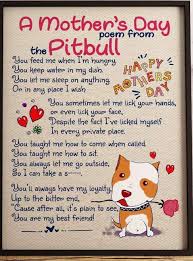 A Mother's Day
poem from
the Pitbull
You feed me when I'm hungry,
You keep water in my dish.
You let me sleep on anything,
Or in any place I wish
HAPPY
MOTHERS
DAY
You sometimes let me lick your hands,
or even lick your face,
Despite the fact I've licked myself
In every private place.
You taught me how to come when called
You taught me how to sit.
You always let me go outside,
So I can take a s----
You'll always have my loyalty,
Up to the bitter end,
'Cause after all, it's plain to see,
You are my best friend!